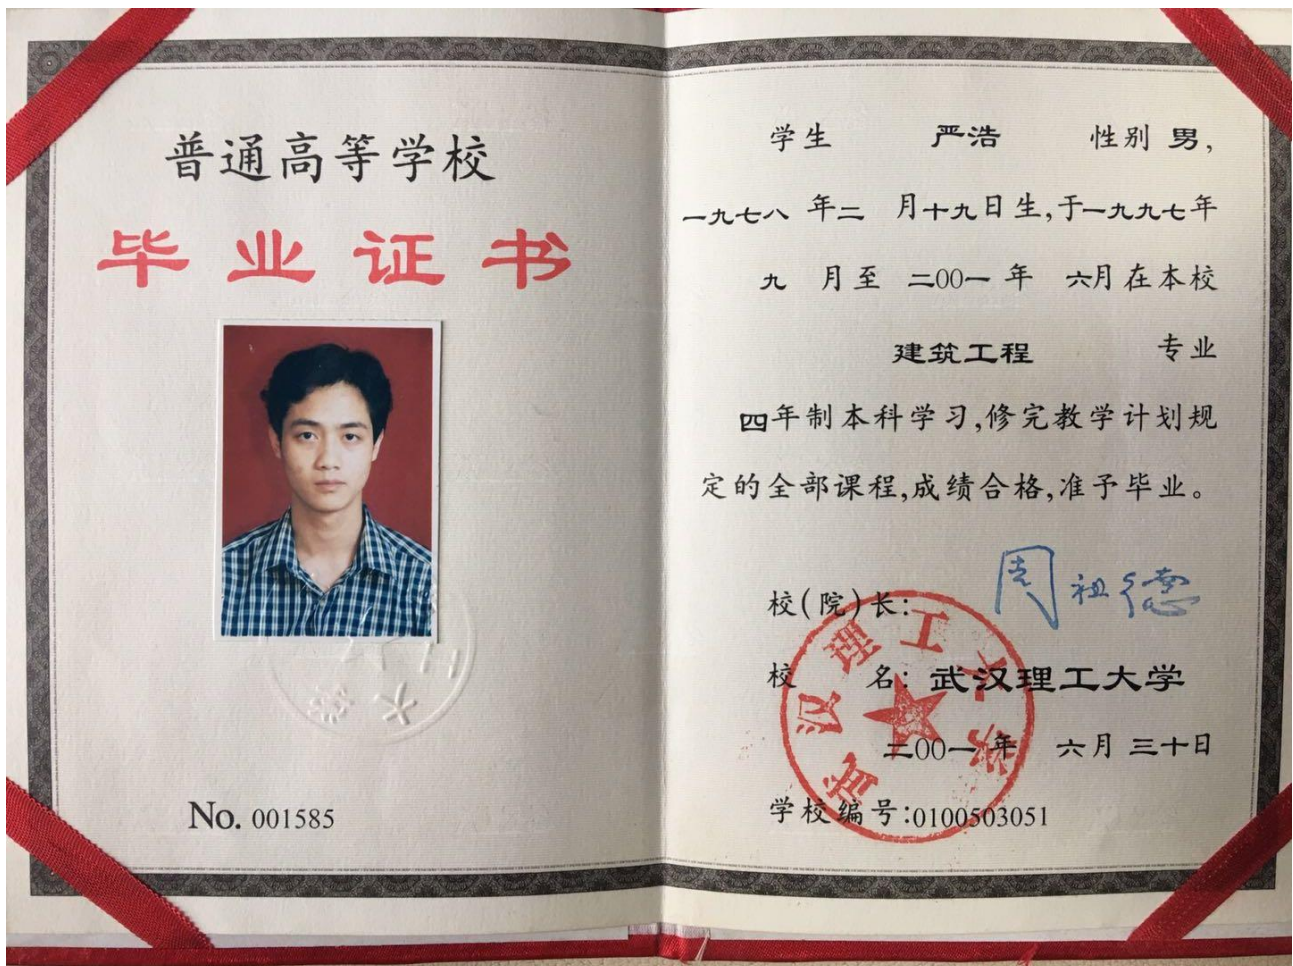 普通高等学校
毕业证书
No. 001585
学生 严浩 性别 男,
一九七八 年二 月十九日生,于一九九七年
九 月至 二00一 年 六月在本校
建筑工程 专业
四年制本科学习,修完教学计划规
定的全部课程,成绩合格,准予毕业。
校(院)长: 周祖德
校 名: 武汉理工大学
二00一 年 六月 三十日
学校编号:0100503051
武汉理工大学